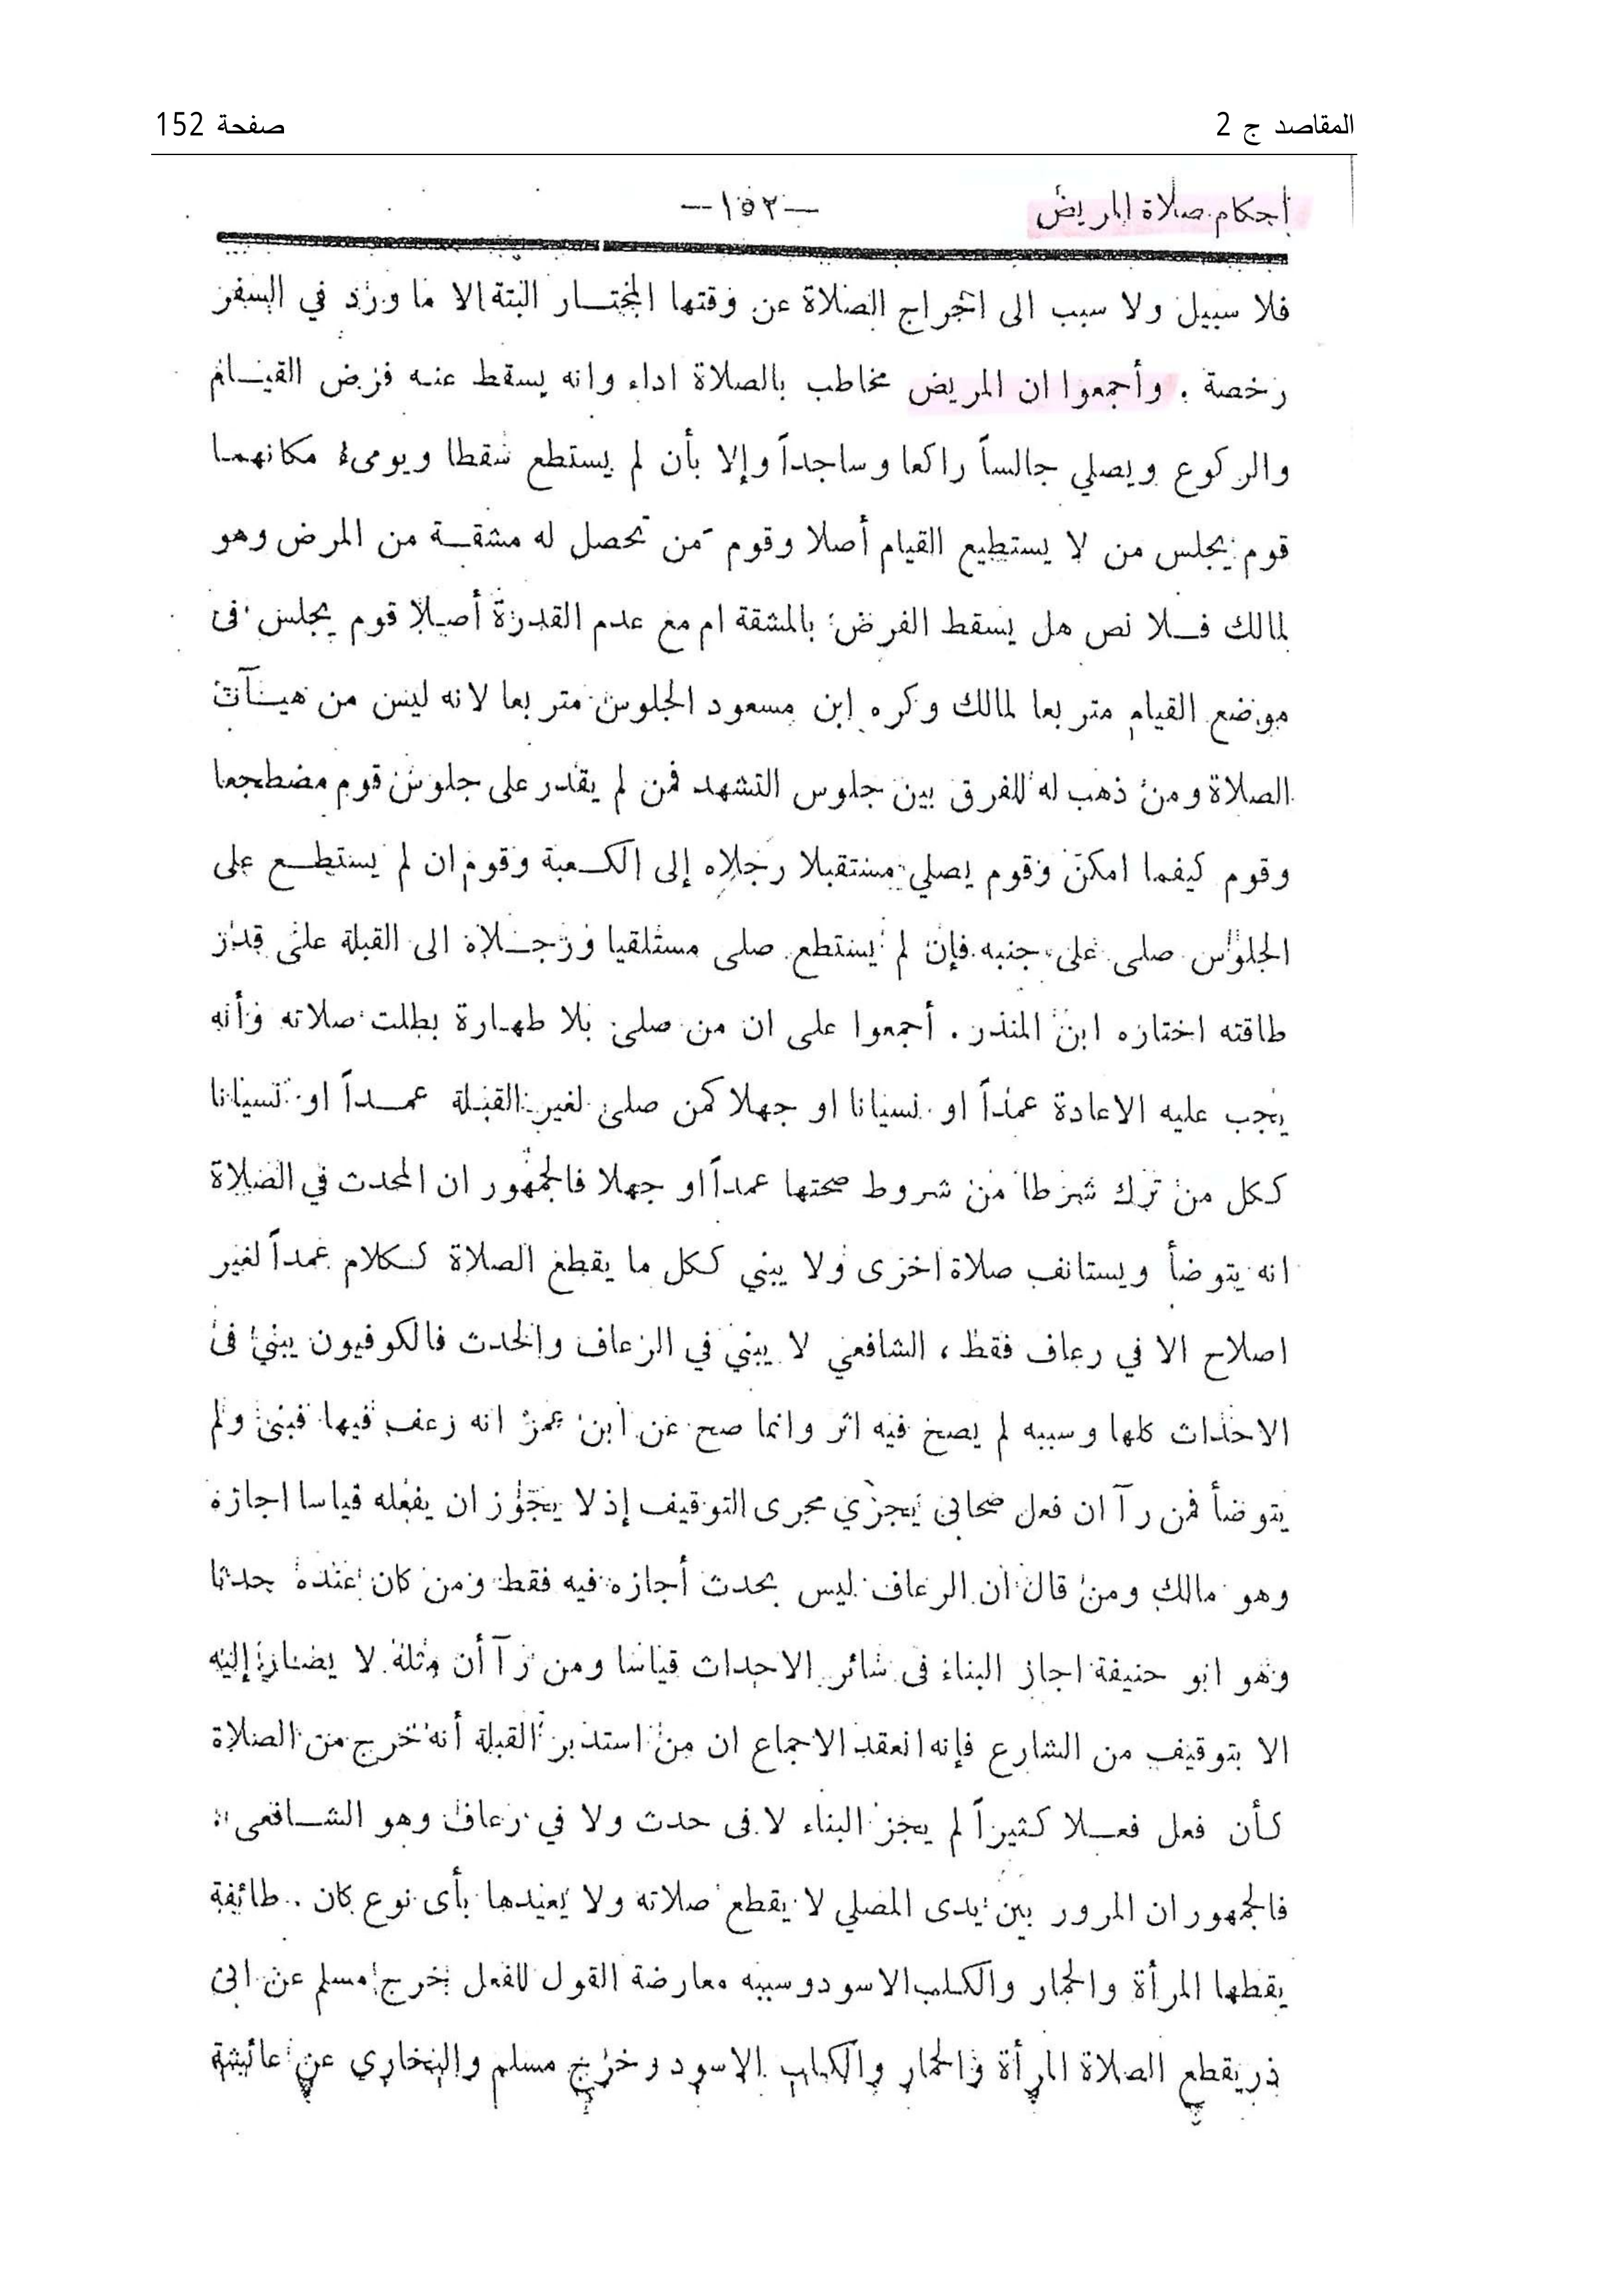 المقاصد ج 2
صفحة 152
أحكام صلاة المريض
—١٥٢—
فلا سبيل ولا سبب الى اخراج الصلاة عن وقتها المختـــار البتة الا ما ورد في السفر
رخصة . وأجمعوا ان المريض مخاطب بالصلاة اداء وانه يسقط عنه فرض القيـــام
والركوع ويصلي جالساً راكعا وساجداً وإلا بأن لم يستطع سقطا ويومىء مكانهما
قوم يجلس من لا يستطيع القيام أصلا وقوم من تحصل له مشقـــة من المرض وهو
لمالك فـــلا نص هل يسقط الفرض بالمشقة ام مع عدم القدرة أصلا قوم يجلس فى
موضع القيام متربعا لمالك وكره ابن مسعود الجلوس متربعا لانه ليس من هيـــآت
الصلاة ومن ذهب له للفرق بين جلوس التشهد فمن لم يقدر على جلوس قوم مضطجعا
وقوم كيفما امكن وقوم يصلي مستقبلا رجلاه إلى الكـــعبة وقوم ان لم يستطـــع على
الجلوس صلى على جنبه فإن لم يستطع صلى مستلقيا ورجـــلاه الى القبلة على قدر
طاقته اختاره ابن المنذر . أجمعوا على ان من صلى بلا طهـارة بطلت صلاته وأنه
يجب عليه الاعادة عمداً او نسيانا او جهلا كمن صلى لغير القبلة عمـــداً او نسيانا
ككل من ترك شرطا من شروط صحتها عمداً او جهلا فالجمهور ان المحدث في الصلاة
انه يتوضأ ويستانف صلاة اخرى ولا يبني ككل ما يقطع الصلاة كـــكلام عمداً لغير
اصلاح الا في رعاف فقط ، الشافعي لا يبني في الرعاف والحدث فالكوفيون يبني فى
الاحداث كلها وسببه لم يصح فيه اثر وانما صح عن ابن عمر انه رعف فيها فبنى ولم
يتوضأ فمن رآ ان فعل صحابى يجري مجرى التوقيف إذ لا يجوز ان يفعله قياسا اجازه
وهو مالك ومن قال ان الرعاف ليس بحدث أجازه فيه فقط ومن كان عنده حدثا
وهو ابو حنيفة اجاز البناء فى سائر الاحداث قياسا ومن رآ أن مثله لا يصار إليه
الا بتوقيف من الشارع فإنه انعقد الاجماع ان من استدبر القبلة أنه خرج من الصلاة
كـأن فعل فعـــلا كثيراً لم يجز البناء لا فى حدث ولا في رعاف وهو الشـــافعى
فالجمهور ان المرور بين يدى المصلي لا يقطع صلاته ولا يعيدها بأى نوع كان . طائفة
يقطعها المرأة والحمار والكـلب الاسود وسببه معارضة القول للفعل خرج مسلم عن ابى
ذر يقطع الصلاة المرأة والحمار والكلب الاسود وخرج مسلم والبخاري عن عائشة